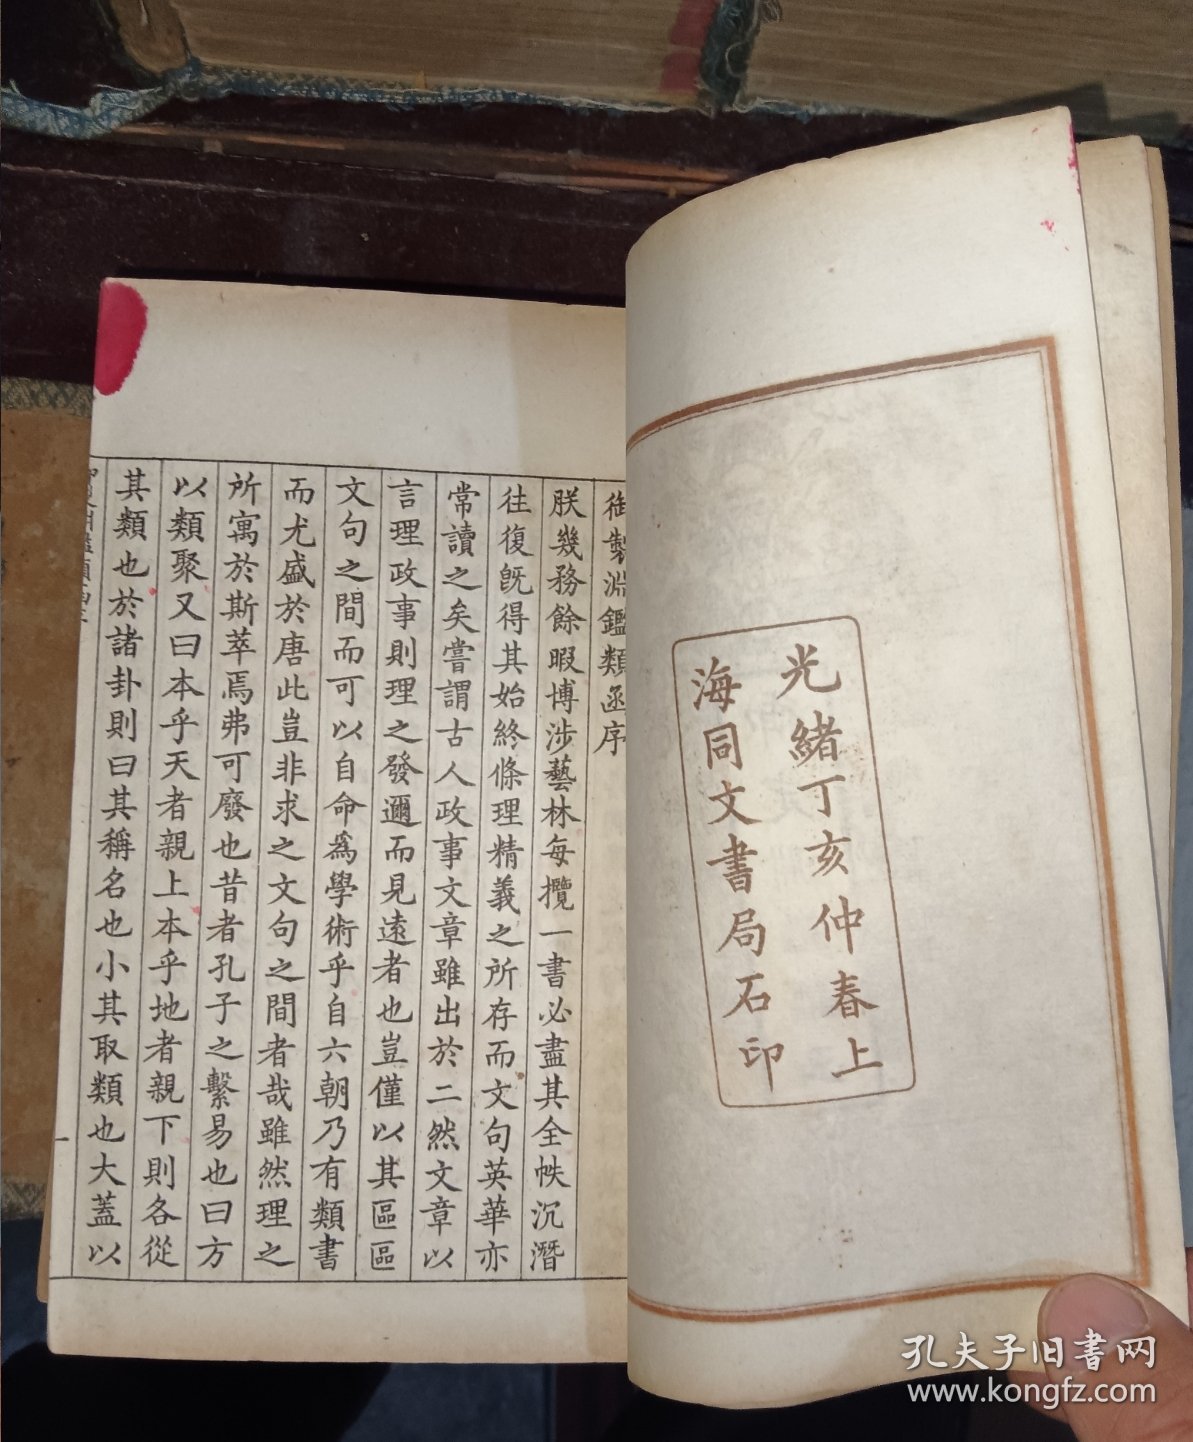 光緒丁亥仲春上
海同文書局石印
御製淵鑑類函序
朕幾務餘暇博涉藝林每攬一書必盡其全帙沉潛
往復旣得其始終條理精義之所存而文句英華亦
常讀之矣嘗謂古人政事文章雖出於二然文章以
言理政事則理之發邇而見遠者也豈僅以其區區
文句之間而可以自命爲學術乎自六朝乃有類書
而尤盛於唐此豈非求之文句之間者哉雖然理之
所寓於斯萃焉弗可廢也昔者孔子之繫易也曰方
以類聚又曰本乎天者親上本乎地者親下則各從
其類也於諸卦則曰其稱名也小其取類也大蓋以
一
孔夫子旧书网
www.kongfz.com